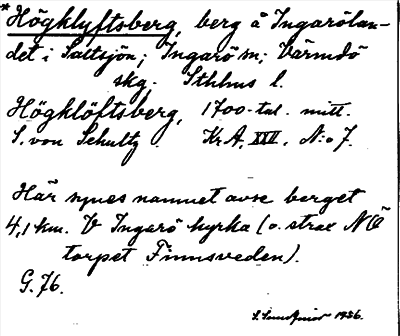 *Högklyftsberg, berg å Ingarölan-
det i Saltsjön; Ingarö sn; Värmdö
skg. Sthlms l.
Högklöftsberg, 1700-tal. mitt.
S. von Schultz KrA, XXII, N:o 7.
Här synes namnet avse berget
4,1 km. V Ingarö kyrka (o. strax NÖ
torpet Finnsveden).
G. 76.
1936.